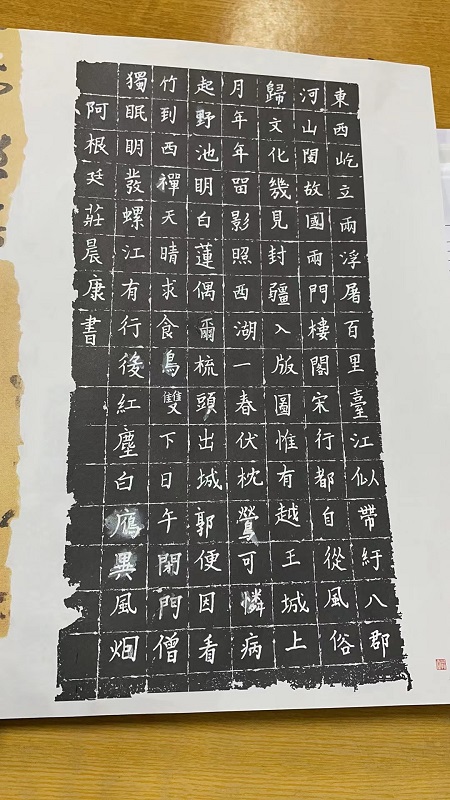 東西屹立兩浮屠百里臺江似帶紆八郡
河山閩故國兩門樓閣宋行都自從風俗
歸文化幾見封疆入版圖惟有越王城上
月年年留影照西湖一春伏枕鶯可憐病
起野池明白蓮偶爾梳頭出城郭便因看
竹到西禪天晴求食鳥雙下日午閉門僧
獨眠明發螺江有行後紅塵白鴈異風烟
阿根廷莊晨康書